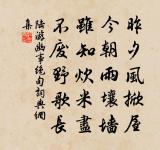 昨夕風掀屋
今朝雨壞牆
雖知炊米盡
不废野歌長
陸游幽事絕句詞典網
集